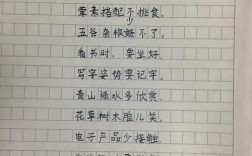 荤素搭配不挑食。
五谷杂粮少不了。
看书时，要坐好，
写字姿势要记牢。
青山绿水多欣赏，
花草树木脸儿笑。
电子产品少接触，